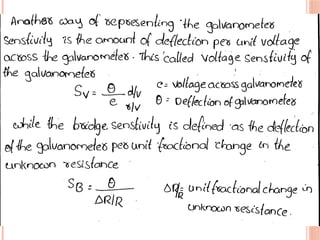 Another way of representing the galvanometer
Senstivity is the amount of deflection per unit voltage
across the galvanometer. This called voltage senstivity of
the galvanometer
Sv = θ/e d/v r/v
e = voltage across galvanometer
θ = Deflection of galvanometer
while the bridge senstivity is defined as the deflection
of the galvanometer per unit fractional change in the
unknown resistance
SB = θ / ΔR/R
ΔR/R = unit fractional change in
unknown resistance.